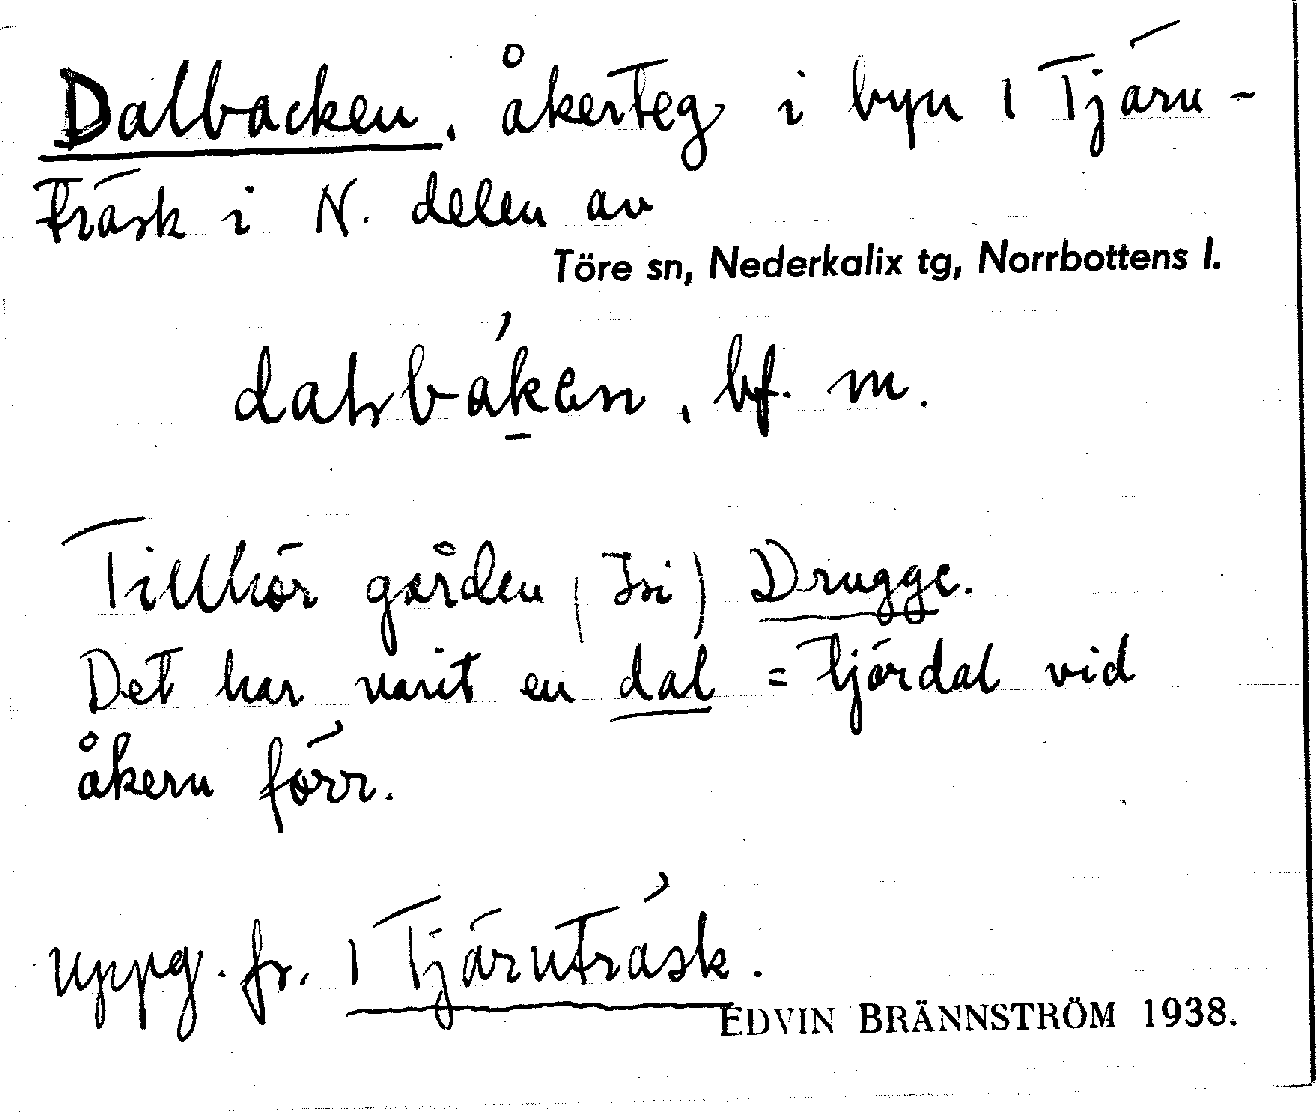 Dalbacken, åkerteg i byn 1 Tjärn-
träsk i N. delen av
Töre sn, Nederkalix tg, Norrbottens l.
bf. m.
Tillhör gården ( ) Drugge.
Det har varit en dal = tjärdal vid
åkern förr.
uppg. fr. 1 Tjärnträsk.
EDVIN BRÄNNSTRÖM 1938.